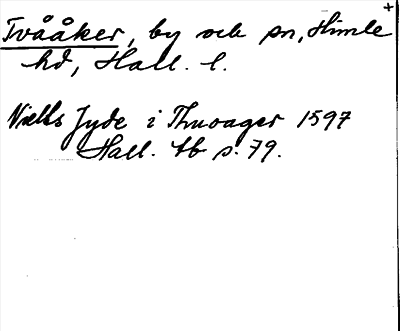 +
Tvååker, by och sn, Himle
hd, Hall. l.
Niells Jyde i Thuoager 1597
Hall. tb s. 79.